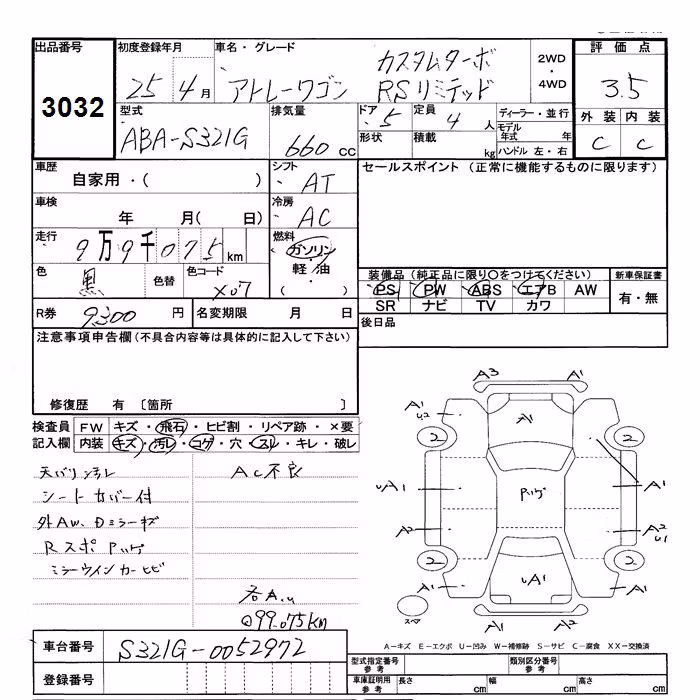 出品番号 初度登録年月 車名・グレード 2WD・4WD 評価点
3032 25年4月 アトレーワゴン カスタムターボ RSリミテッド 3.5
型式 排気量 ドア 定員 ディーラー・並行 外装 内装
ABA-S321G 660cc 5 4人 モデル年式 年 C C
形状 積載 kg ハンドル 左・右
車歴 シフト セールスポイント (正常に機能するものに限ります)
自家用・( ) AT
車検 冷房
年 月( 日) AC
走行 燃料
9万9千075km ガソリン
軽油
・( )
色 色替 色コード 装備品 (純正品に限り○をつけてください) 新車保証書
黒 X07 PS PW ABS エアB AW 有・無
SR ナビ TV カワ
R券 9300円 名変期限 月 日 後日品
注意事項申告欄 (不具合内容等は具体的に記入して下さい)
修復歴 有 〔箇所 〕
検査員 FW キズ・飛石・ヒビ割・リペア跡・×要
記入欄 内装 キズ・汚レ・コゲ・穴・スレ・キレ・破レ
天バリ汚レ AC不良
シートカバー付
外AW、Dミラーキズ
Rスポ Pハゲ
ミラーウインカーヒビ
各A.u
◎99.075km
A3 A1
A1 u2 A1 A1
2 2
uA1 Pハゲ A1
A2 A2 u1
2 2
A1 uA1 A1
スマ A1 A2
A-キズ E-エクボ U-凹み W-補修跡 S-サビ C-腐食 XX-交換済
車台番号 S321G-0052972
登録番号
型式指定番号 参考 類別区分番号 参考
車庫証明用 参考 長さ cm 幅 cm 高さ cm